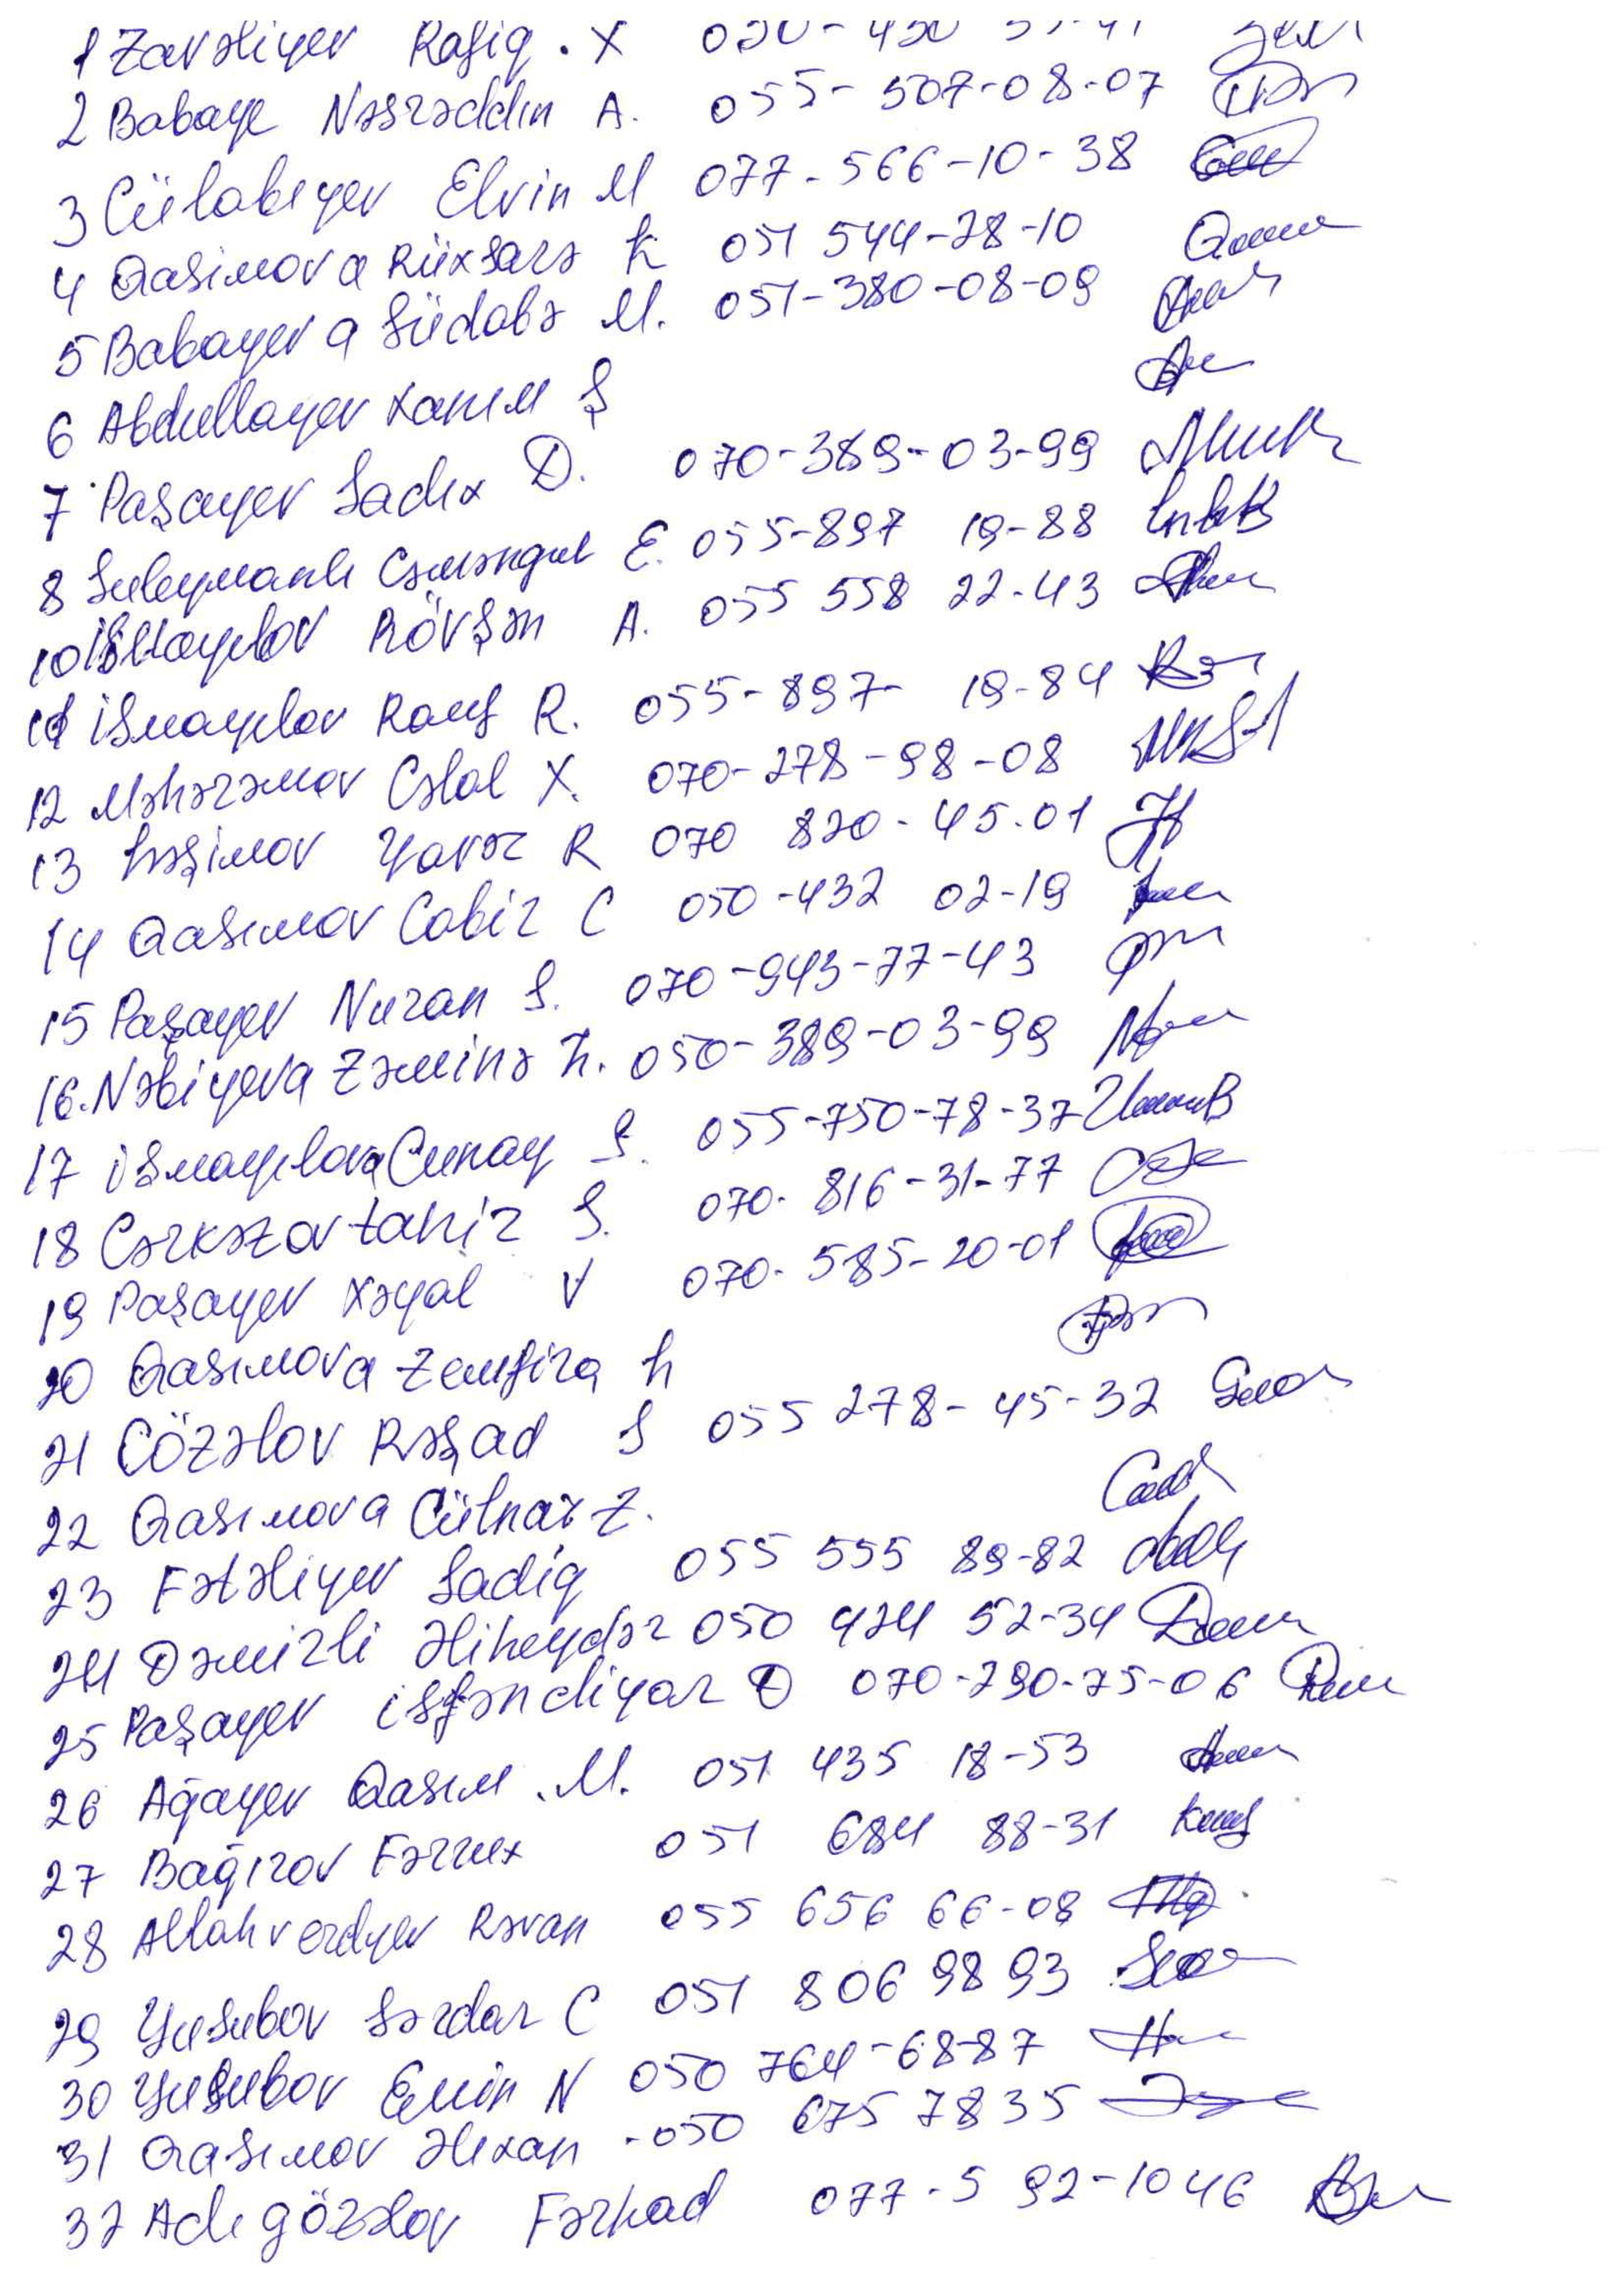 1 Zavəliyev Rafiq . X
2 Babaye Nəsrəddin A. 055- 507-08-07
3 Cülabıyev Elvin M 077-566-10-38
4 Qasimova Rüxsarə K 051 544-28-10
5 Babayeva Südabə M. 051-380-08-09
6 Abdullayev Xanım Ş
7 Paşayev Sadıx D. 070-389-03-99
8 Suleymanlı Cəməngul E. 055-897 19-88
10 ismayılov Rövşən A. 055 558 22-43
11 ismayılov Rauf R. 055-897- 19-84
12 Məhərəmov Cəlal X. 070-278-98-08
13 həşimov Yavər R 070 820-45.01
14 Qasımov Cabir C 050-432 02-19
15 Paşayev Nuran S. 070-943-77-43
16. Nəbiyeva Zəminə h. 050-389-03-99
17 ismayılova Cunay S. 055-750-78-37
18 Cərkəzov tahir S. 070-816-31-77
19 Paşayev Xəyal V 070-585-20-01
20 Qasımova Zemfira h
21 Cözəlov Rəşad S 055 278-45-32
22 Qasımova Cülnar Z.
23 Fətəliyev Sadiq 055 555 89-82
24 Dəmirli Əliheydər 050 424 52-34
25 Paşayev isfəndiyar D 070-290-75-06
26 Ağayev Qasım . M. 051 435 18-53
27 Bağırov Fərrux 051 684 88-31
28 Allahverdyev Rəvan 055 656 66-08
29 Yusubov Sərdar C 051 806 98 93
30 Yusubov Emin N 050 764-68-87
31 Qasımov Əlixan -050 675 78 35
32 Adıgözəlov Fərhad 077-5 92-10 46